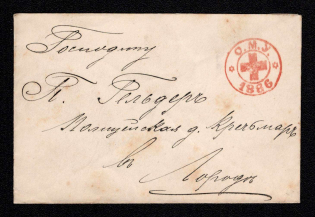 Господину
П. Гельдеръ
Полицейская д. Кречмаръ
въ
Городѣ
О.М.У.
1886